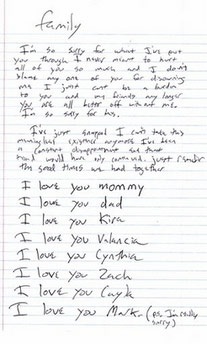 family
I'm so sorry for what I've put
you through I never meant to hurt
all of you so much and I don't
blame any one of you for disowning
me I just cant be a burden
to you and my friends any longer
You are all better off without me.
I'm so sorry for this.
I've just snapped I can't take this
meaningless existence anymore I've been
a constant disappointment and that
trend would have only continued. just remember
the good times we had together
I love you mommy
I love you dad
I love you Kira
I love you Valancia
I love you Cynthia
I love you Zach
I love you Cayla
I love you Mark (ps. I'm really
sorry)